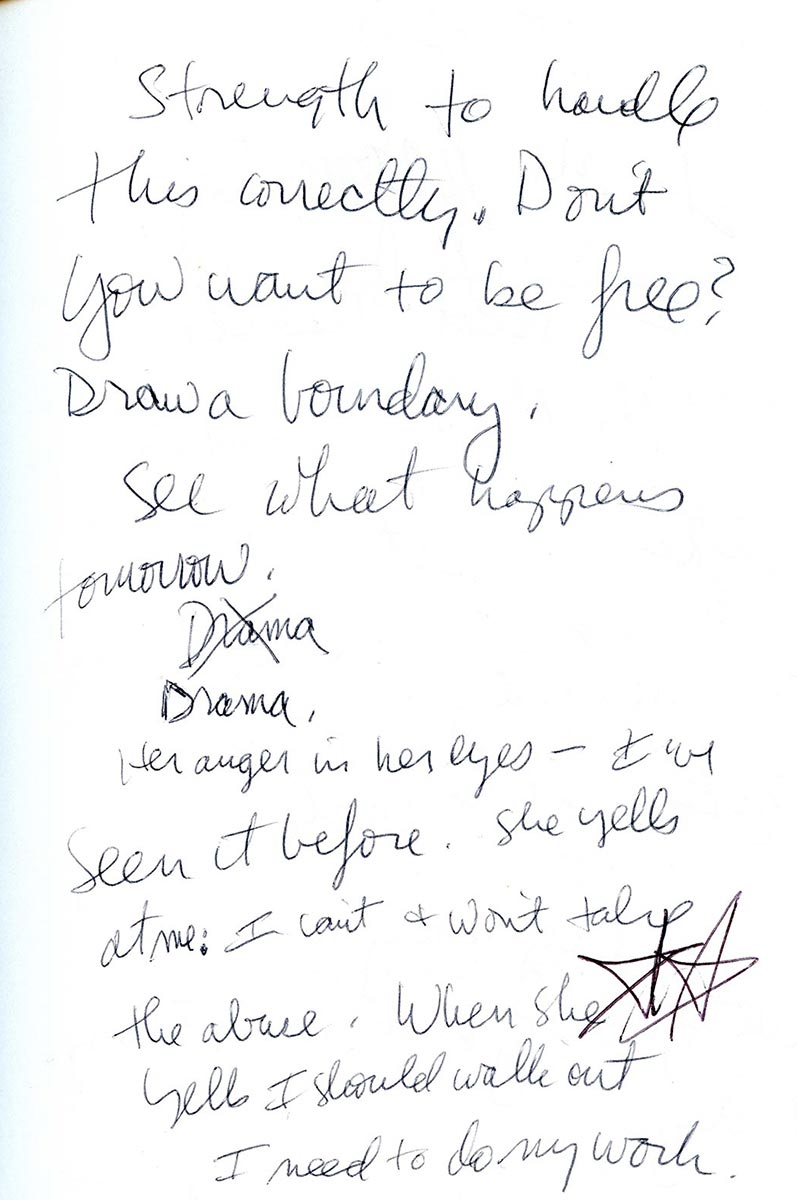 Strength to handle
this correctly. Don't
you want to be free?
Draw a boundary.
See what happens
tomorrow.
Drama
Drama.
Her anger in her eyes — I've
seen it before. She yells
at me: I can't & won't take
the abuse. When she
yells I should walk out
I need to do my work.